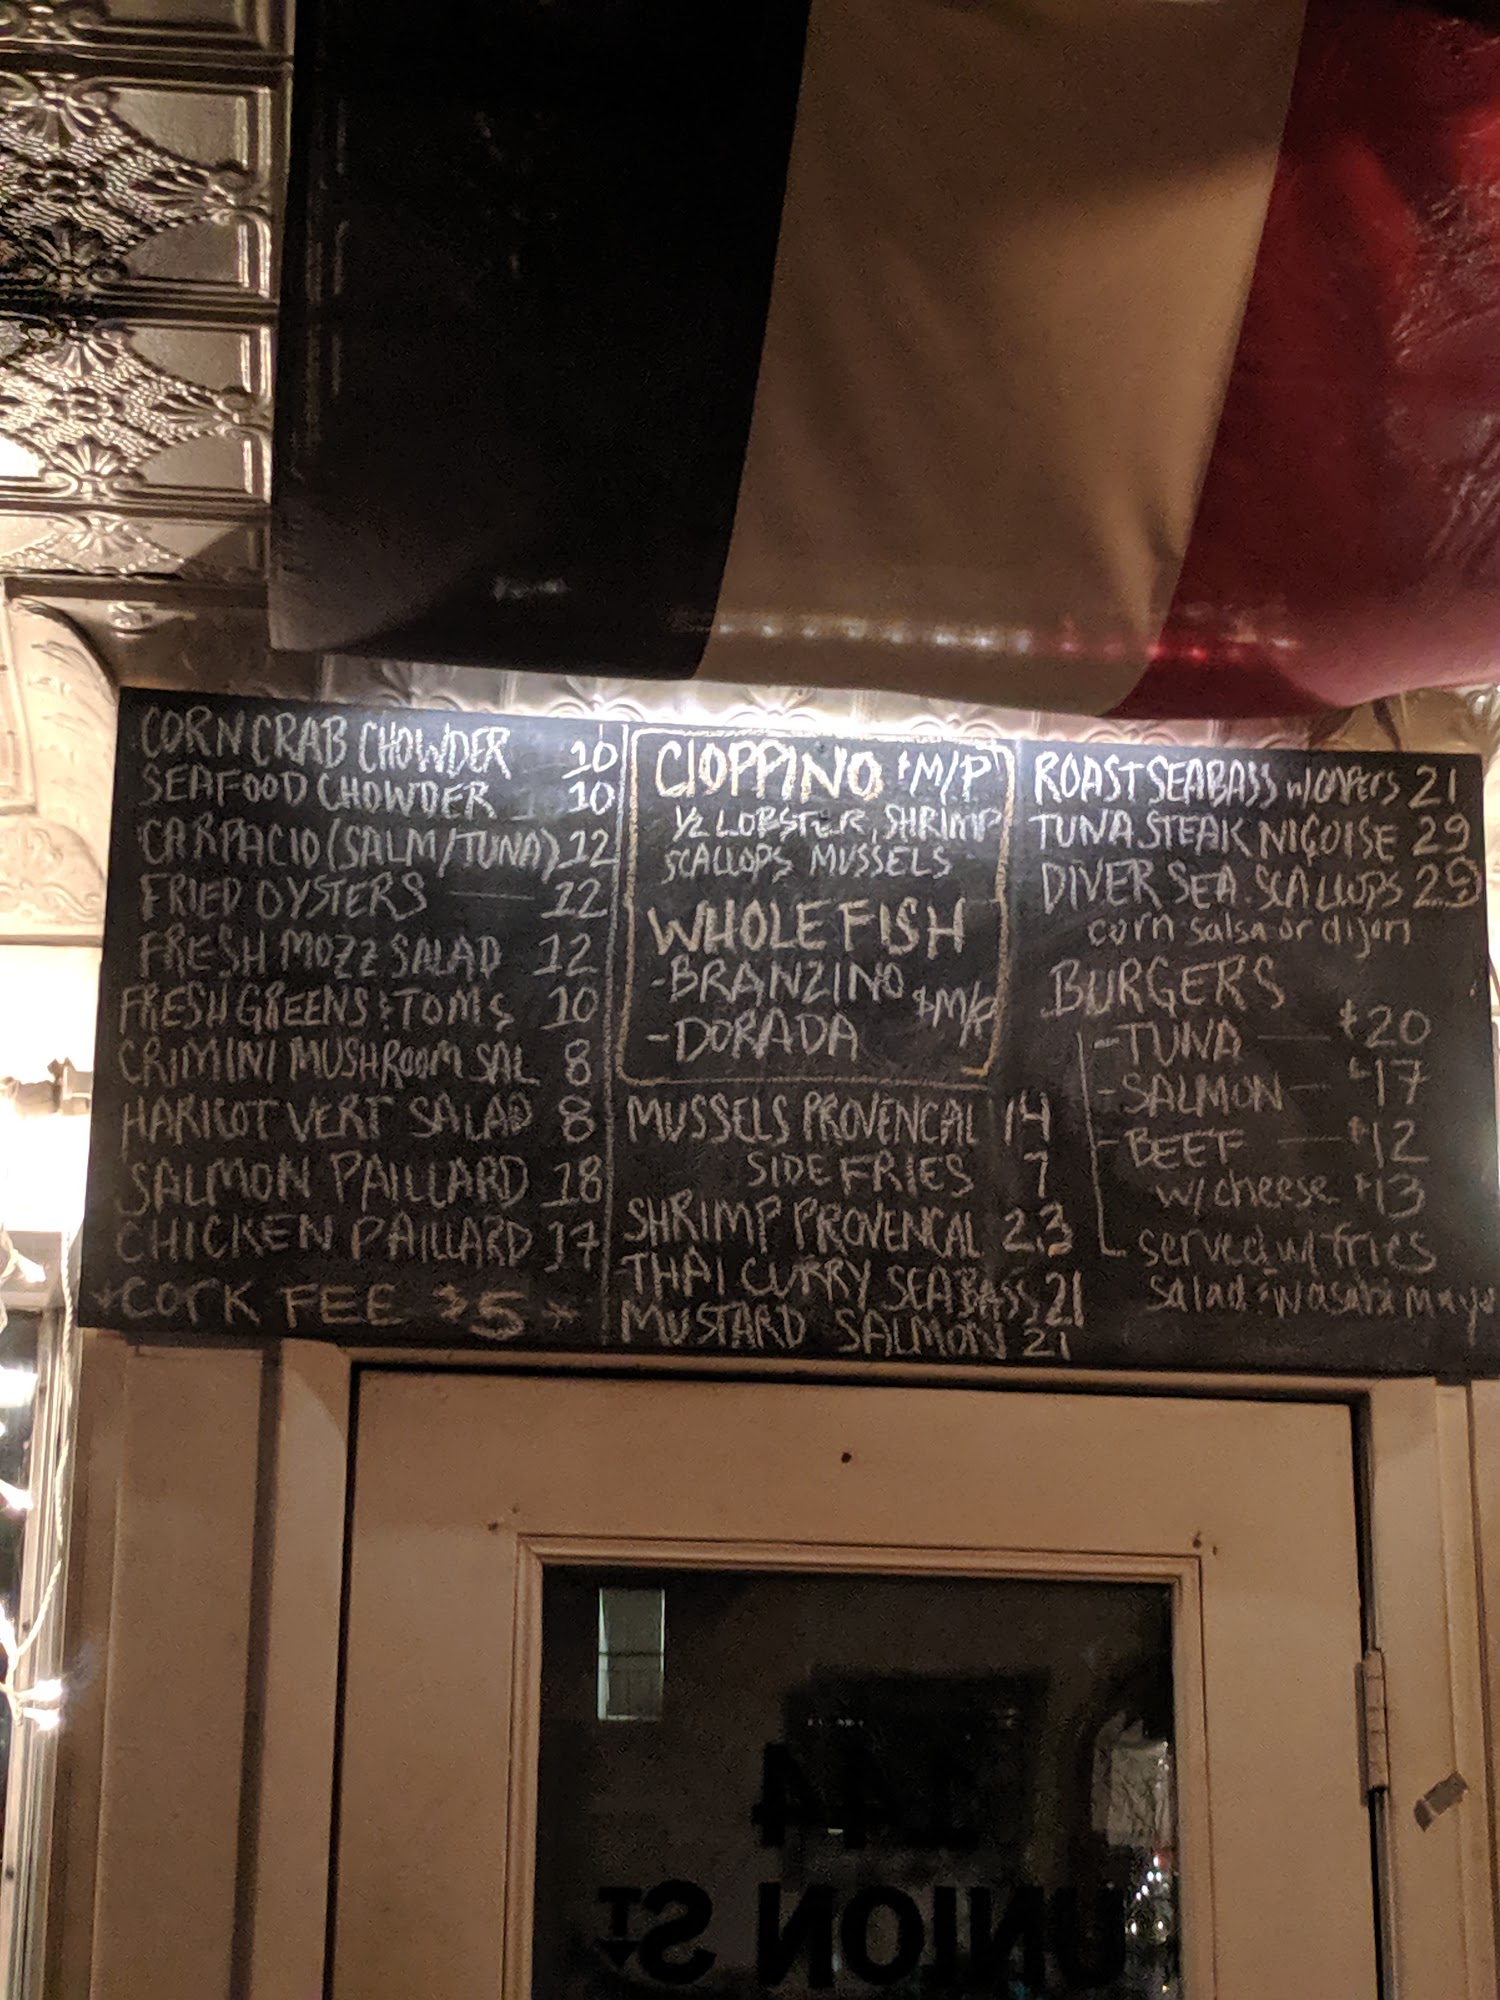 CORN CRAB CHOWDER 10
SEAFOOD CHOWDER 10
CARPACIO (SALM/TUNA) 12
FRIED OYSTERS 12
FRESH MOZZ SALAD 12
FRESH GREENS & TOMS 10
CRIMINI MUSHROOM SAL 8
HARICOT VERT SALAD 8
SALMON PAILLARD 18
CHICKEN PAILLARD 17
*CORK FEE $5*
CIOPPINO $M/P
1/2 LOBSTER, SHRIMP
SCALLOPS MUSSELS
WHOLE FISH
-BRANZINO
$M/P
-DORADA
MUSSELS PROVENCAL 14
SIDE FRIES 7
SHRIMP PROVENCAL 23
THAI CURRY SEABASS 21
MUSTARD SALMON 21
ROAST SEABASS w/CAPERS 21
TUNA STEAK NIÇOISE 29
DIVER SEA. SCALLOPS 29
corn salsa or dijon
BURGERS
-TUNA — $20
-SALMON — $17
-BEEF — $12
w/cheese $13
served w/ fries
salad & wasabi mayo
144
UNION ST